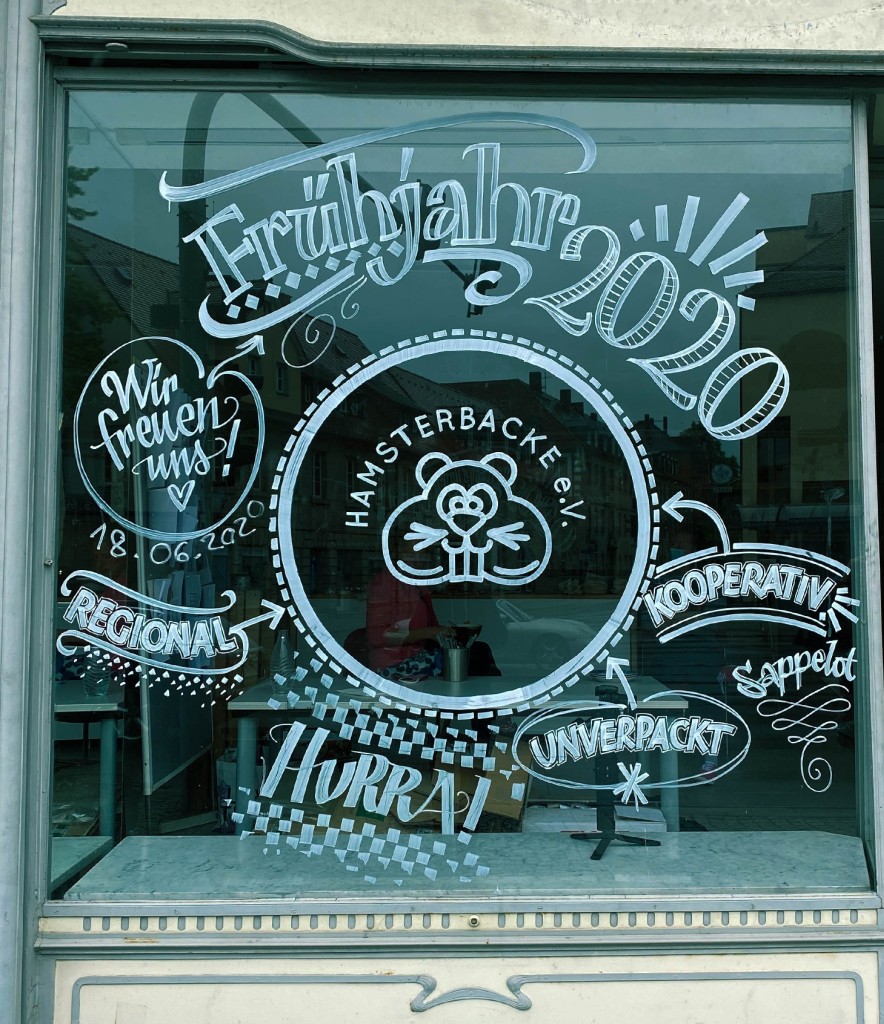 Frühjahr 2020
Wir
freuen
uns!
18.06.2020
HAMSTERBACKE e.V.
REGIONAL
KOOPERATIV
Sappelot
UNVERPACKT
HURRA!